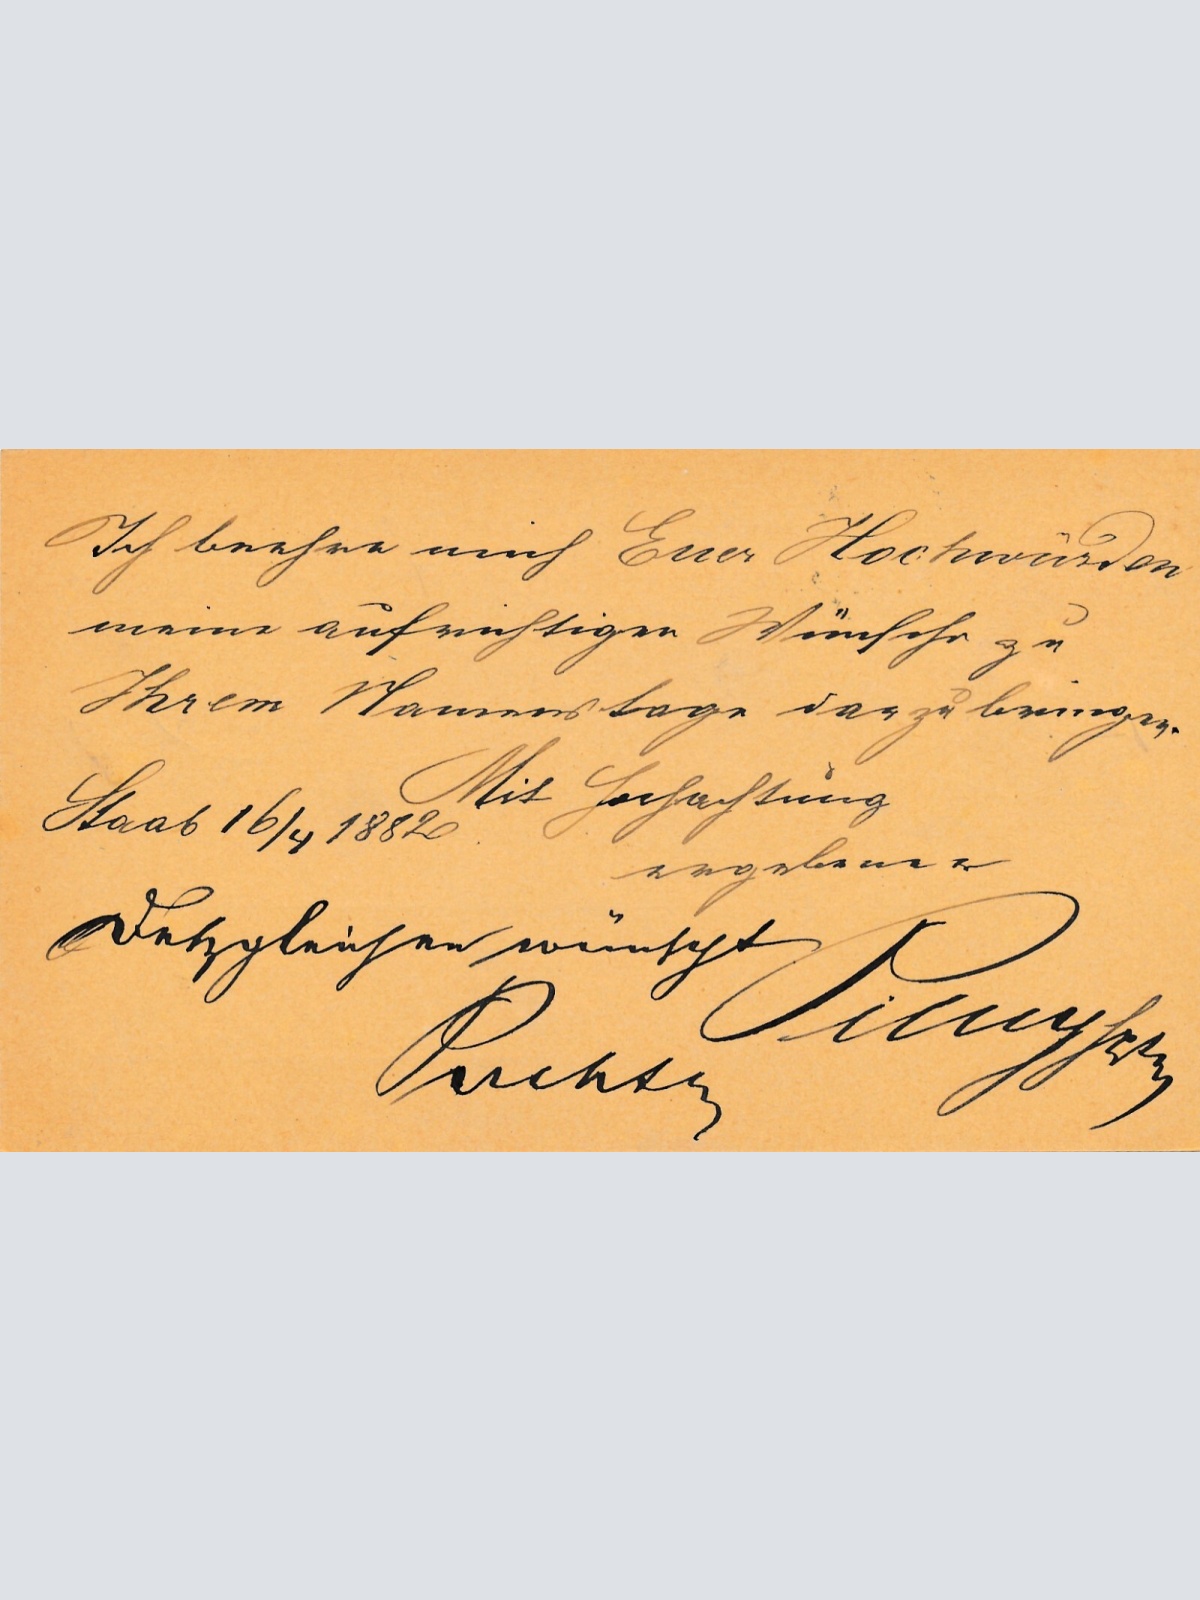 Ich beehre mich Euer Hochwürden
meine aufrichtigen Wünsche zu
Ihrem Namenstage darzubringen.
Mit Hochachtung
Staab 16/4 1882
ergebener
Detzgleichen wünscht